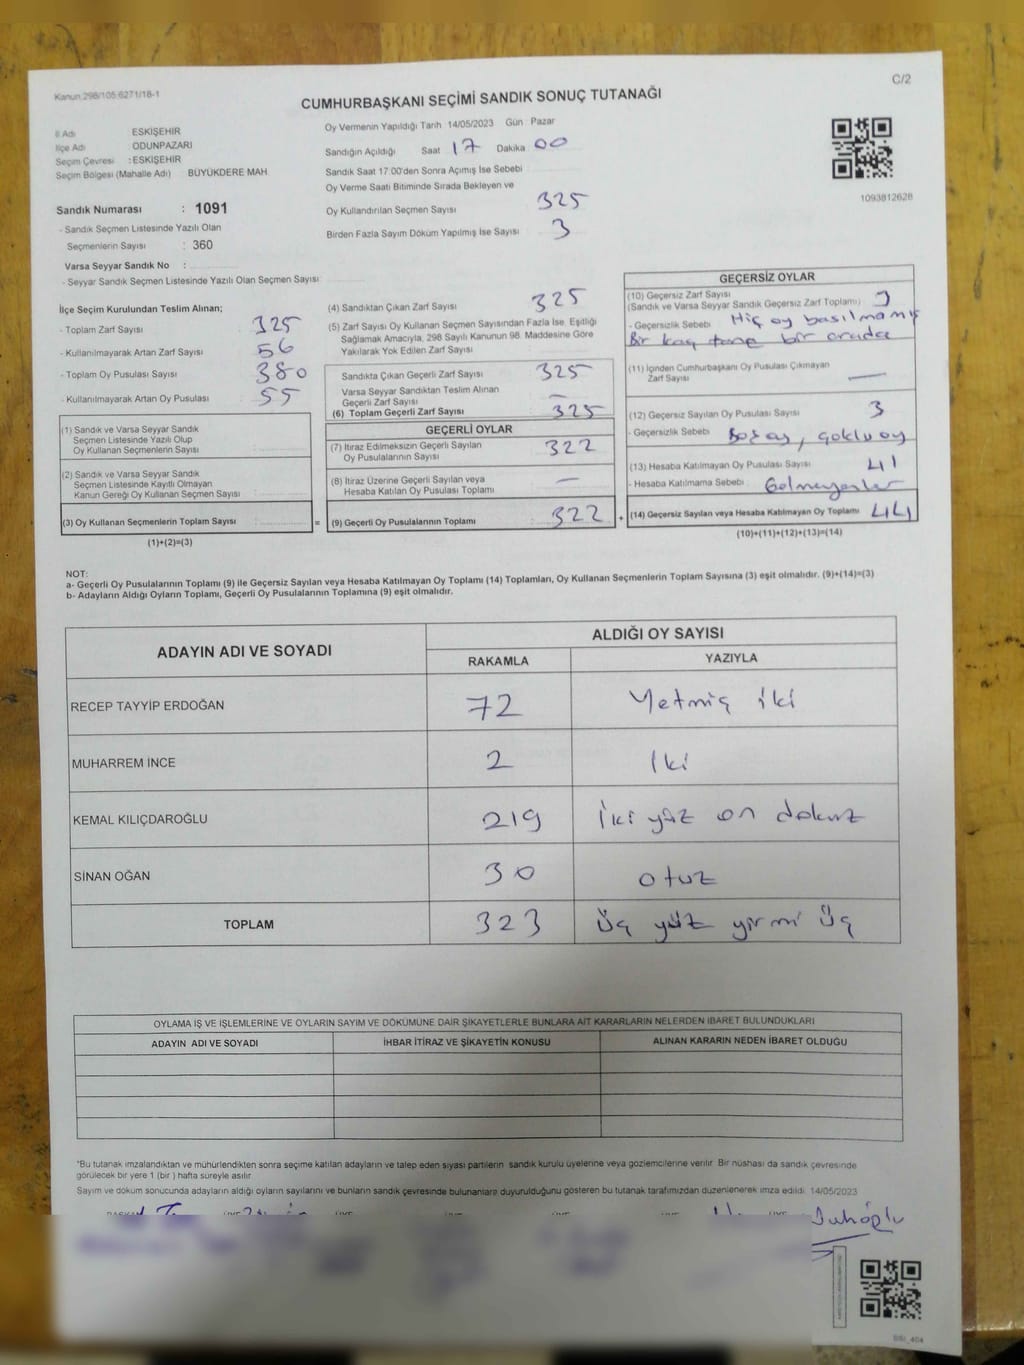 Kanun 298/105 6271/18-1
C/2
CUMHURBAŞKANI SEÇİMİ SANDIK SONUÇ TUTANAĞI
İl Adı ESKİŞEHİR
İlçe Adı ODUNPAZARI
Seçim Çevresi : ESKİŞEHİR
Seçim Bölgesi (Mahalle Adı) BÜYÜKDERE MAH
Sandık Numarası : 1091
- Sandık Seçmen Listesinde Yazılı Olan
Seçmenlerin Sayısı : 360
Varsa Seyyar Sandık No :
- Seyyar Sandık Seçmen Listesinde Yazılı Olan Seçmen Sayısı
Oy Vermenin Yapıldığı Tarih 14/05/2023 Gün Pazar
Sandığın Açıldığı Saat 17 Dakika 00
Sandık Saat 17:00'den Sonra Açımış İse Sebebi
Oy Verme Saati Bitiminde Sırada Bekleyen ve
Oy Kullandırılan Seçmen Sayısı 325
Birden Fazla Sayım Döküm Yapılmış İse Sayısı 3
1093812628
İlçe Seçim Kurulundan Teslim Alınan;
- Toplam Zarf Sayısı 325
- Kullanılmayarak Artan Zarf Sayısı 56
- Toplam Oy Pusulası Sayısı 380
- Kullanılmayarak Artan Oy Pusulası 55
(1) Sandık ve Varsa Seyyar Sandık
Seçmen Listesinde Yazılı Olup
Oy Kullanan Seçmenlerin Sayısı
(2) Sandık ve Varsa Seyyar Sandık
Seçmen Listesinde Kayıtlı Olmayan
Kanun Gereği Oy Kullanan Seçmen Sayısı
(3) Oy Kullanan Seçmenlerin Toplam Sayısı =
(1)+(2)=(3)
(4) Sandıktan Çıkan Zarf Sayısı 325
(5) Zarf Sayısı Oy Kullanan Seçmen Sayısından Fazla İse, Eşitliği
Sağlamak Amacıyla, 298 Sayılı Kanunun 98. Maddesine Göre
Yakılarak Yok Edilen Zarf Sayısı
Sandıkta Çıkan Geçerli Zarf Sayısı 325
Varsa Seyyar Sandıktan Teslim Alınan
Geçerli Zarf Sayısı –
(6) Toplam Geçerli Zarf Sayısı 325
GEÇERLİ OYLAR
(7) İtiraz Edilmeksizin Geçerli Sayılan
Oy Pusulalarının Sayısı 322
(8) İtiraz Üzerine Geçerli Sayılan veya
Hesaba Katılan Oy Pusulası Toplamı —
(9) Geçerli Oy Pusulalarının Toplamı 322 +
GEÇERSİZ OYLAR
(10) Geçersiz Zarf Sayısı
(Sandık ve Varsa Seyyar Sandık Geçersiz Zarf Toplamı)
- Geçersizlik Sebebi Hiç oy basılmamış
Bir kaç tane bir arada
(11) İçinden Cumhurbaşkanı Oy Pusulası Çıkmayan
Zarf Sayısı —
(12) Geçersiz Sayılan Oy Pusulası Sayısı 3
- Geçersizlik Sebebi çoklu oy
(13) Hesaba Katılmayan Oy Pusulası Sayısı 41
- Hesaba Katılmama Sebebi Gelmeyenler
(14) Geçersiz Sayılan veya Hesaba Katılmayan Oy Toplamı 44
(10)+(11)+(12)+(13)=(14)
NOT:
a- Geçerli Oy Pusulalarının Toplamı (9) ile Geçersiz Sayılan veya Hesaba Katılmayan Oy Toplamı (14) Toplamları, Oy Kullanan Seçmenlerin Toplam Sayısına (3) eşit olmalıdır. (9)+(14)=(3)
b- Adayların Aldığı Oyların Toplamı, Geçerli Oy Pusulalarının Toplamına (9) eşit olmalıdır.
ADAYIN ADI VE SOYADI ALDIĞI OY SAYISI
RAKAMLA YAZIYLA
RECEP TAYYİP ERDOĞAN 72 Yetmiş iki
MUHARREM İNCE 2 İki
KEMAL KILIÇDAROĞLU 219 İki yüz on dokuz
SİNAN OĞAN 30 otuz
TOPLAM 323 Üç yüz yirmi üç
OYLAMA İŞ VE İŞLEMLERİNE VE OYLARIN SAYIM VE DÖKÜMÜNE DAİR ŞİKAYETLERLE BUNLARA AİT KARARLARIN NELERDEN İBARET BULUNDUKLARI
ADAYIN ADI VE SOYADI İHBAR İTİRAZ VE ŞİKAYETİN KONUSU ALINAN KARARIN NEDEN İBARET OLDUĞU
*Bu tutanak imzalandıktan ve mühürlendikten sonra seçime katılan adayların ve talep eden siyası partilerin sandık kurulu üyelerine veya gözlemcilerine verilir. Bir nüshası da sandık çevresinde
görülecek bir yere 1 (bir) hafta süreyle asılır
Sayım ve döküm sonucunda adayların aldığı oyların sayılarını ve bunların sandık çevresinde bulunanlara duyurulduğunu gösteren bu tutanak tarafımızdan düzenlenerek imza edildi. 14/05/2023